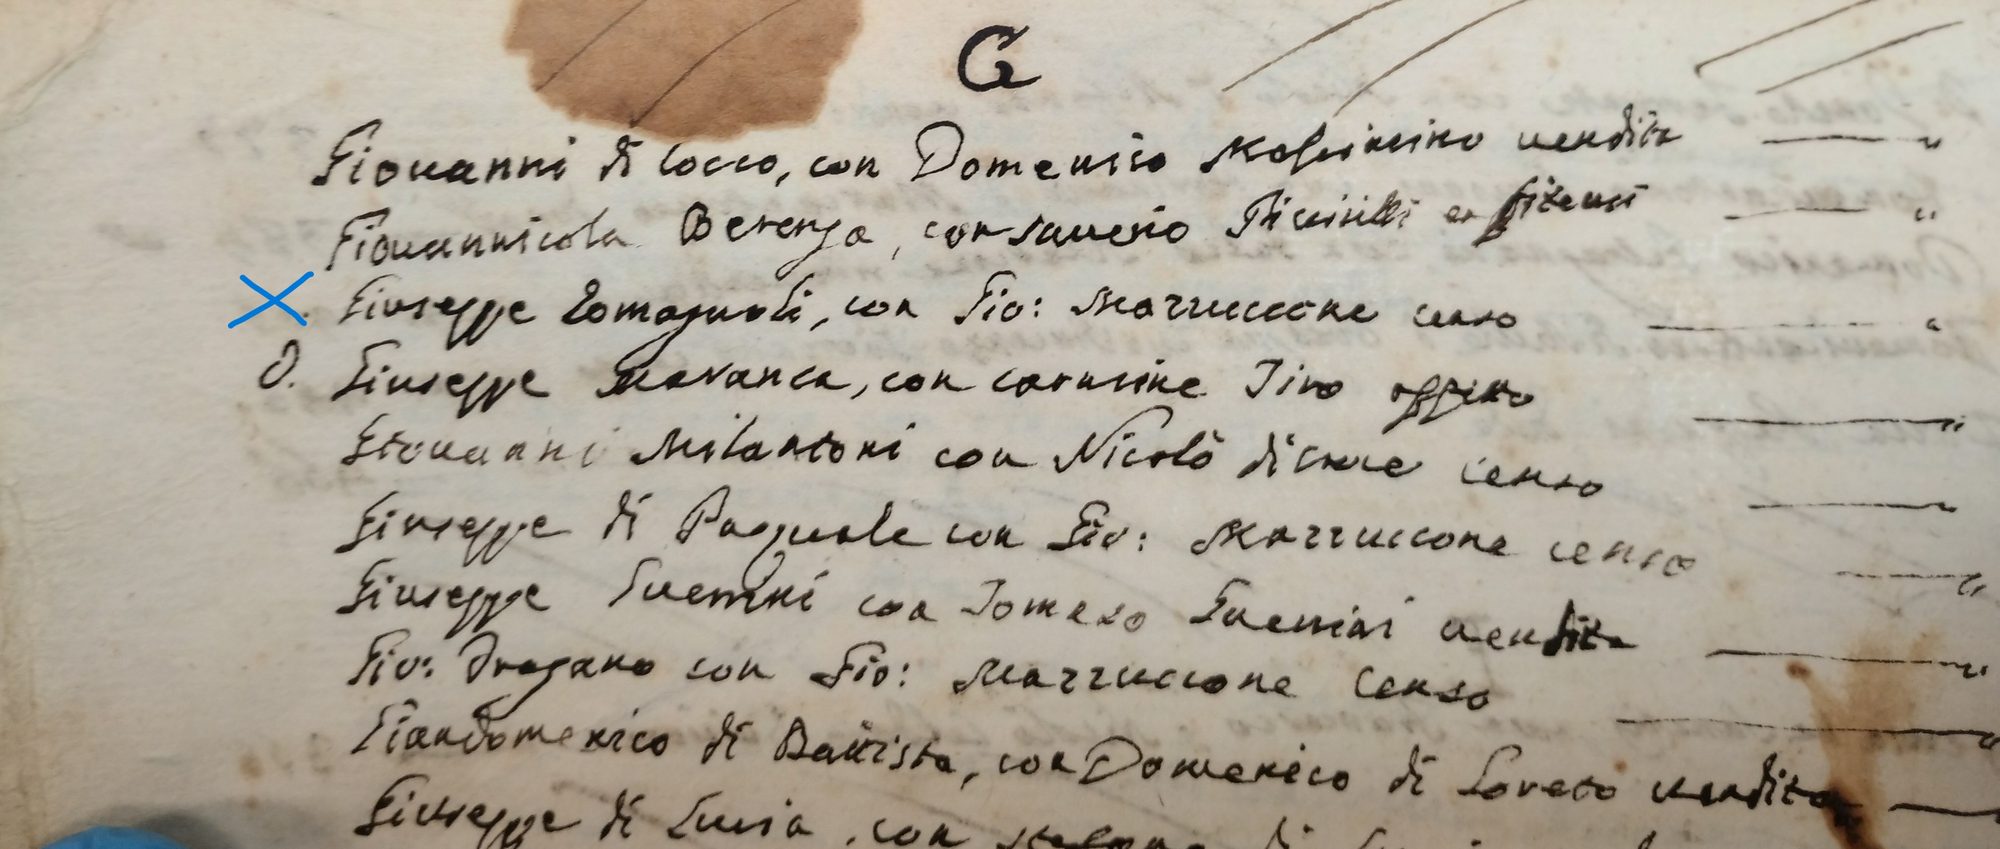 G
Giovanni di Cocco, con Domenico Massimino vendita
Giovannicola Berenga, con Saverio Piccirilli enfiteusi
Giuseppe Romagnoli, con Gio: Marruccone censo
O. Giuseppe con Carmine Tino
Giovanni Milantoni con Nicolò censo
Giuseppe di Pasquale con Gio: Marruccone censo
Giuseppe Guerrini con Tomaso Guerrini vendita
Gio: Dragano con Gio: Marruccone censo
Giandomenico di Battista, con Domenico di Loreto vendita
Giuseppe di Luisa, con di